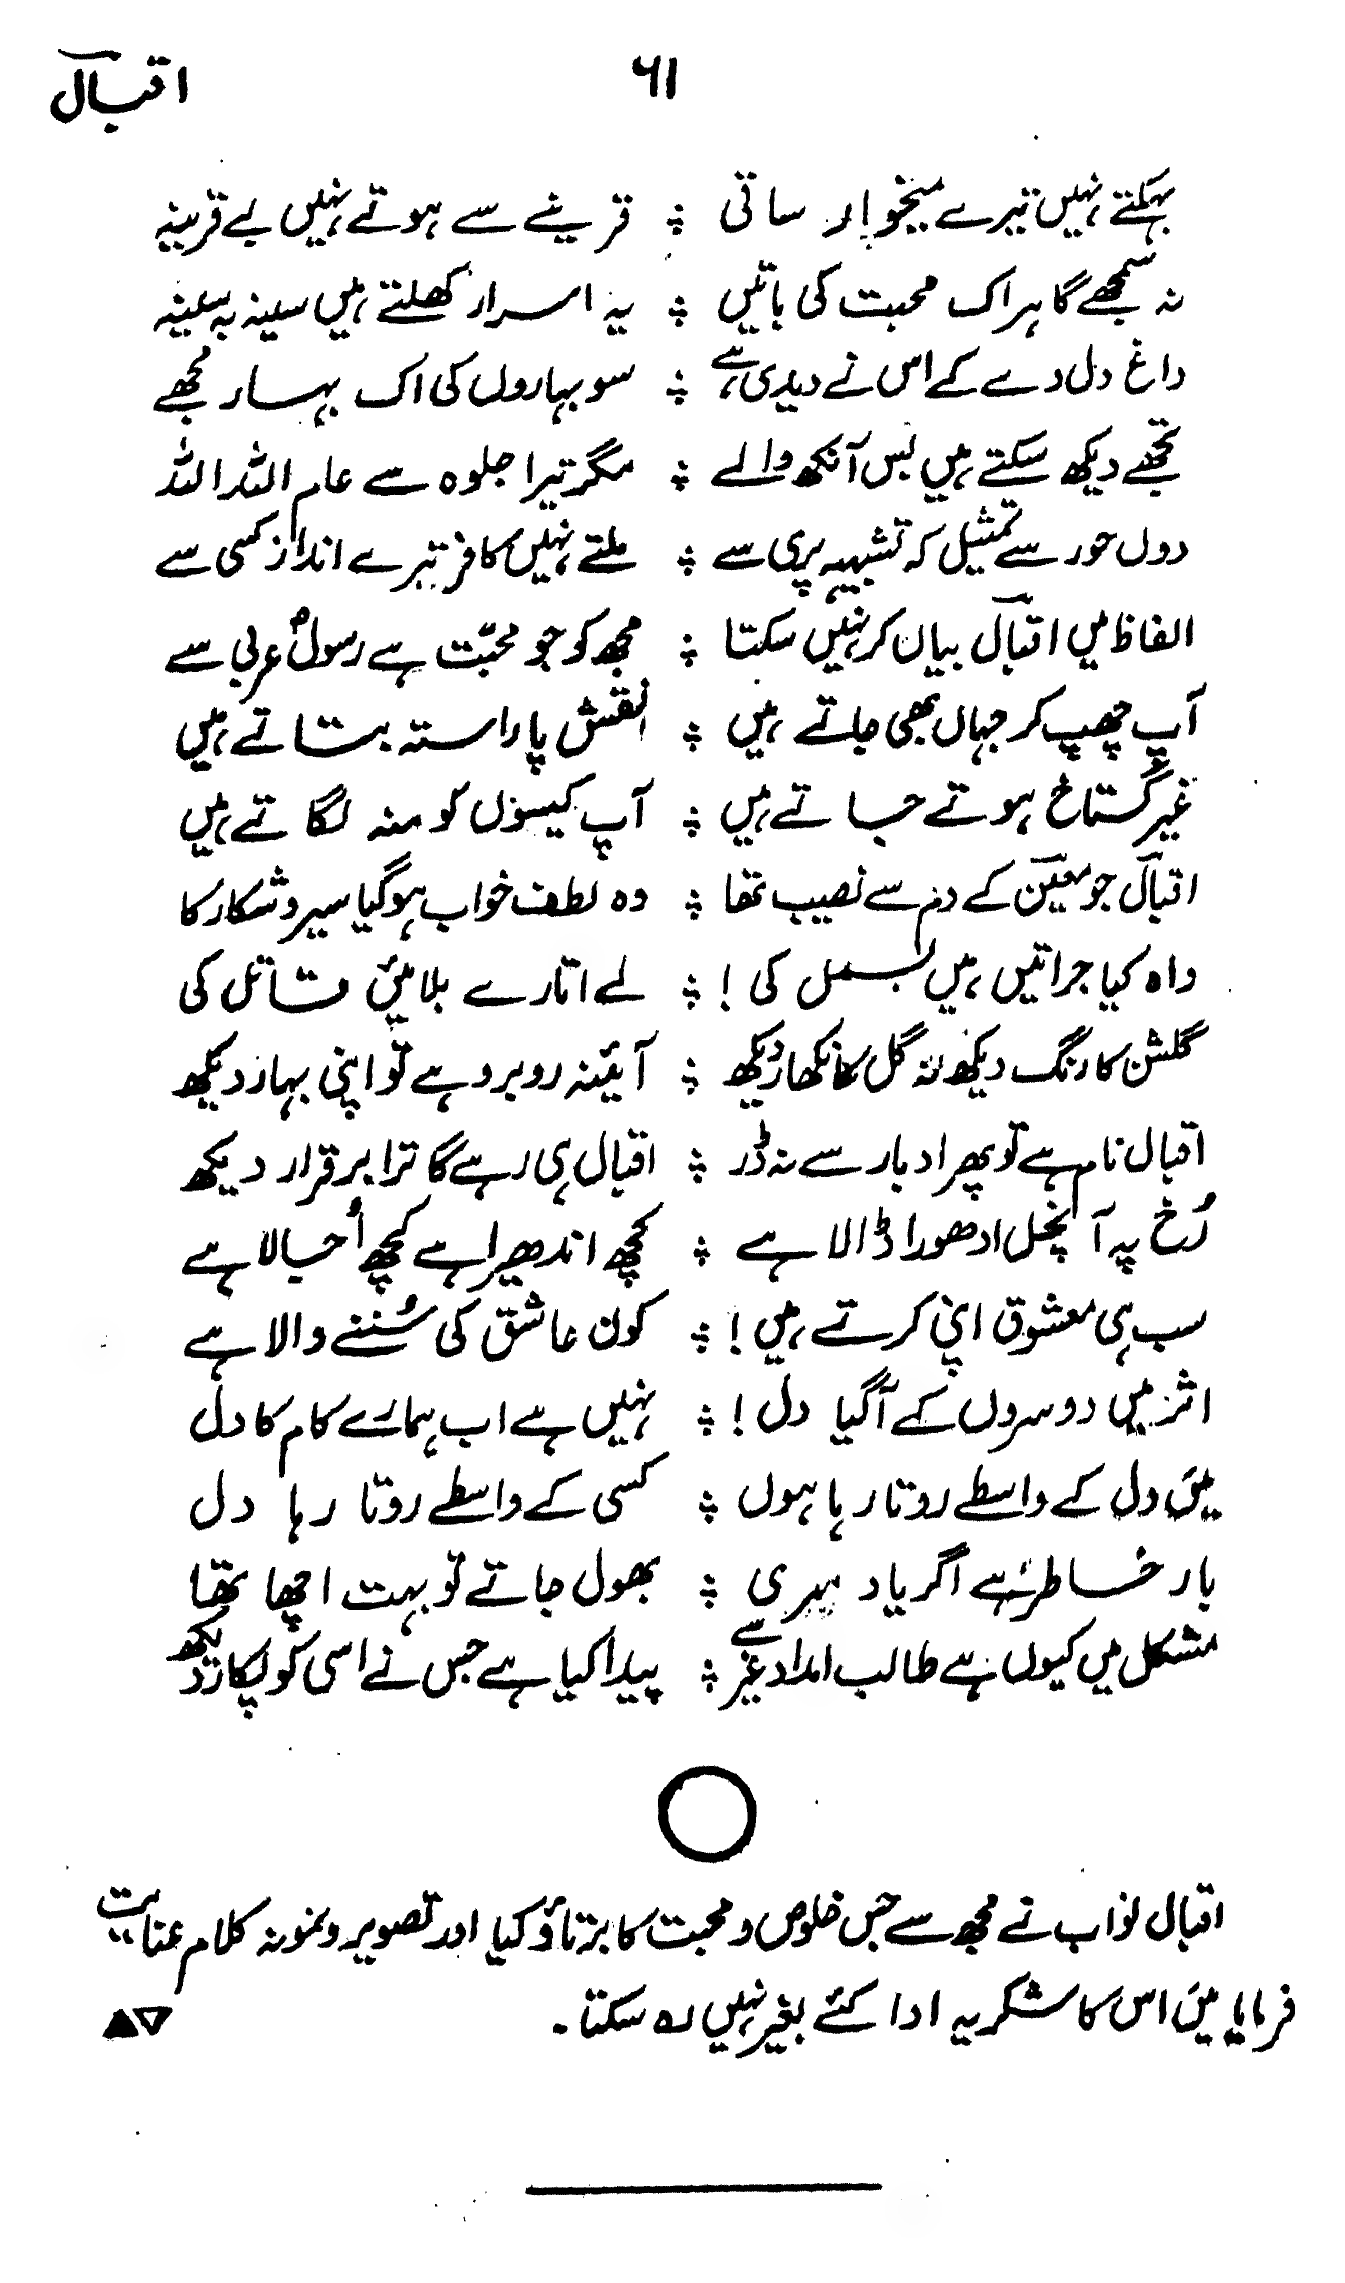 ۶۱ اقبالؔ
بہکتے نہیں تیرے میخوار ساقی ؞ قرینے سے ہوتے نہیں بے قرینہ
نہ سمجھے گا ہر اک محبت کی باتیں ؞ یہ اسرار کھلتے ہیں سینہ بہ سینہ
داغ دل دے کے اس نے دیدی ہے ؞ سو بہاروں کی اک بہار مجھے
تجھے دیکھ سکتے ہیں بس آنکھ والے ؞ مگر تیرا جلوہ ہے عام اللہ اللہ
دوں حور سے تمثیل کہ تشبیہہ پری سے ؞ ملتے نہیں کافر تیرے انداز کسی سے
الفاظ میں اقبالؔ بیاں کر نہیں سکتا ؞ مجھ کو جو محبّت ہے رسولؐ عربی سے
آپ چھپ کر جہاں بھی جاتے ہیں ؞ نقش پا راستہ بتاتے ہیں
غیر گستاخ ہوتے جاتے ہیں ؞ آپ کیسوں کو منہ لگاتے ہیں
اقبالؔ جو معینؔ کے دم سے نصیب تھا ؞ وہ لطف خواب ہو گیا سیر و شکار کا
واہ کیا جراتیں ہیں بسمل کی ! ؞ لے اتارے بلائیں قاتل کی
گلشن کا رنگ دیکھ نہ گل کا نکھار دیکھ ؞ آئینہ روبرو ہے تو اپنی بہار دیکھ
اقبال نام ہے تو پھر ادبار سے نہ ڈر ؞ اقبال ہی رہے گا ترا برقرار دیکھ
رُخ پہ آنچل ادھورا ڈالا ہے ؞ کچھ اندھیرا ہے کچھ اُجالا ہے
سب ہی معشوق اپنی کرتے ہیں ! ؞ کون عاشق کی سُننے والا ہے
اثر میں دوسروں کے آگیا دل ! ؞ نہیں ہے اب ہمارے کام کا دل
میں دل کے واسطے روتا رہا ہوں ؞ کسی کے واسطے روتا رہا دل
بار خاطر ہے اگر یاد میری ؞ بھول جاتے تو بہت اچھا تھا
مشکل میں کیوں ہے طالب امداد غیر سے ؞ پیدا کیا ہے جس نے اسی کو پکار دیکھ
اقبال نواب نے مجھ سے جس خلوص و محبت کا برتاؤ کیا اور تصویر و نمونہ کلام عنایت
فرمایا میں اس کا شکریہ ادا کئے بغیر نہیں رہ سکتا۔